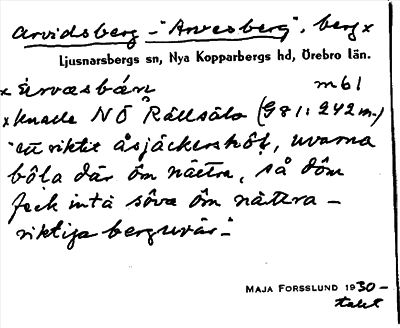 Arvidsberg - "Arvesberg", berg x
Ljusnarsbergs sn, Nya Kopparbergs hd, Örebro län.
x ärvasbán m61
x knade NÖ Rällsälv (G81: 242 m.)
"ett riktit åsjäckershôl, uvarna
bôla där ôm nättra, så dôm
feck intä sôva ôm nättra –
riktija berguvar"
MAJA FORSSLUND 1930-
talet